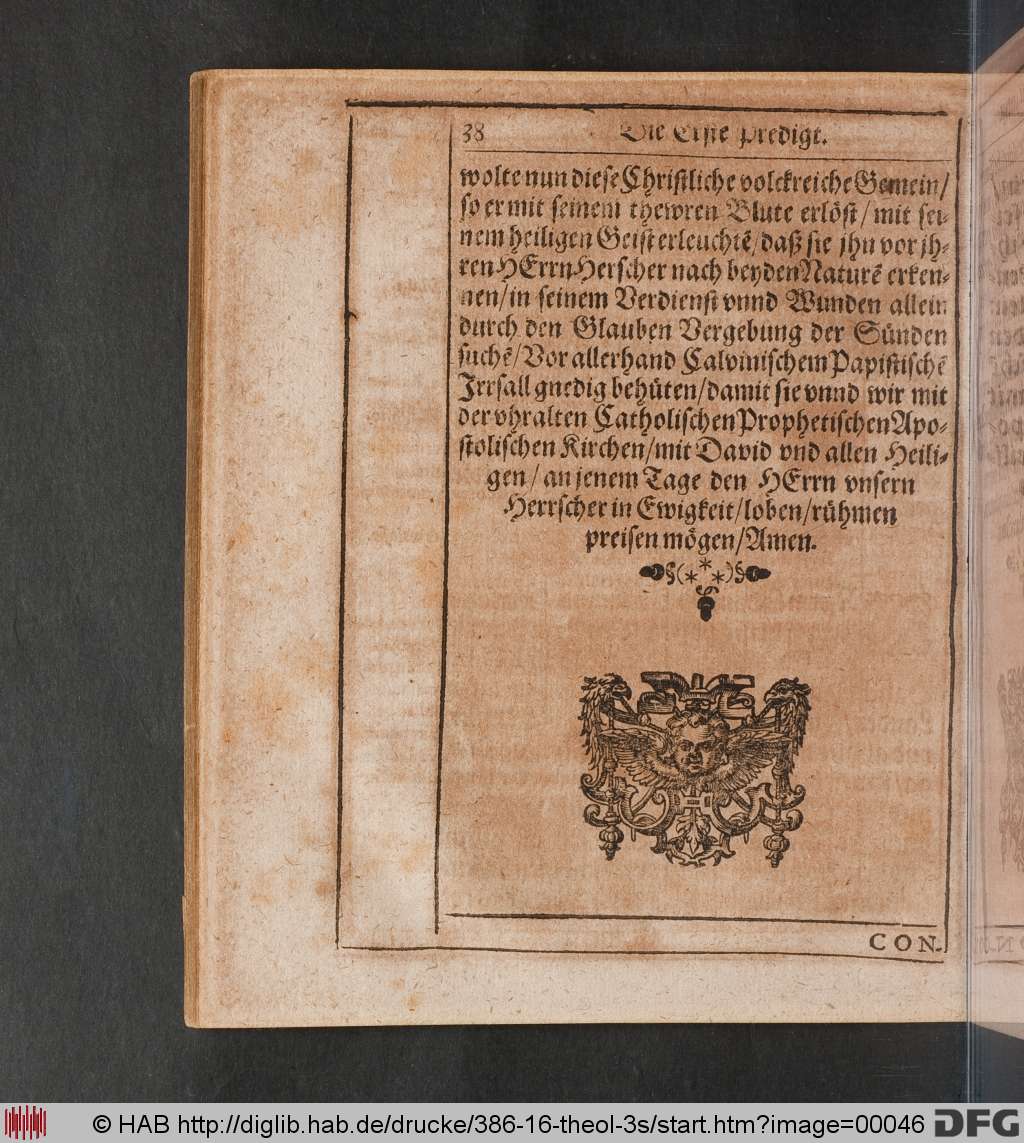 38 Die Erste Predigt.
wolte nun diese Christliche volckreiche Gemein/
so er mit seinem thewren Blute erlöst/mit sei-
nem heiligen Geist erleuchtẽ/daß sie jhn vor jh-
ren HErrn Herscher nach beyden Naturẽ erken-
nen/in seinem Verdienst vnnd Wunden allein
durch den Glauben Vergebung der Sünden
suchẽ/Vor allerhand Calvinischem Papistischẽ
Irrsall gnedig behüten/damit sie vnnd wir mit
der vhralten Catholischen Prophetischen Apo-
stolischen Kirchen/mit David vnd allen Heili-
gen/an jenem Tage den HErrn vnsern
Herrscher in Ewigkeit/loben/rühmen
preisen mögen/Amen.
CON-
© HAB http://diglib.hab.de/drucke/386-16-theol-3s/start.htm?image=00046 DFG